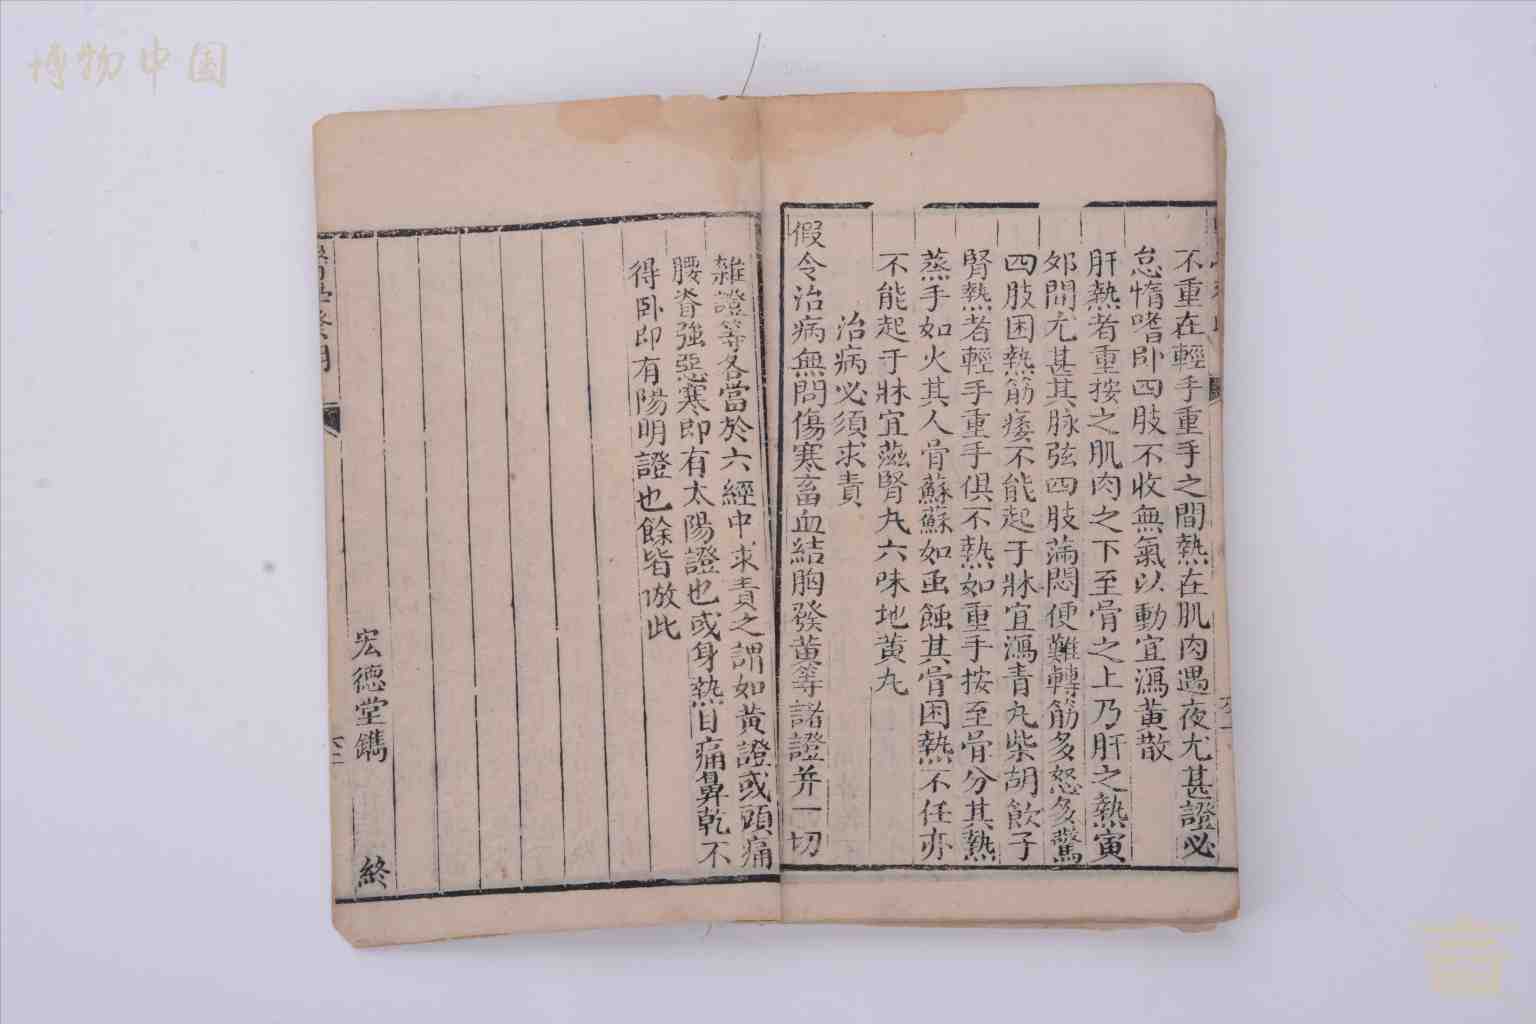 博物中国
不重在輕手重手之間熱在肌肉遇夜尤甚證必
怠惰嗜卧四肢不收無氣以動宜瀉黃散
肝熱者重按之肌肉之下至骨之上乃肝之熱寅
郊間尤甚其脉弦四肢滿悶便難轉筋多怒多驚
四肢困熱筋痿不能起于牀宜瀉青丸柴胡飲子
腎熱者輕手重手俱不熱如重手按至骨分其熱
蒸手如火其人骨蘇蘇如虫蝕其骨困熱不任亦
不能起于牀宜滋腎丸六味地黃丸
治病必須求責
假令治病無問傷寒畜血結胸發黃等諸證并一切
雜證等各當於六經中求責之謂如黃證或頭痛
腰脊強惡寒即有太陽證也或身熱目痛鼻乾不
得卧即有陽明證也餘皆倣此
宏德堂鐫 終
醫學發明
六二